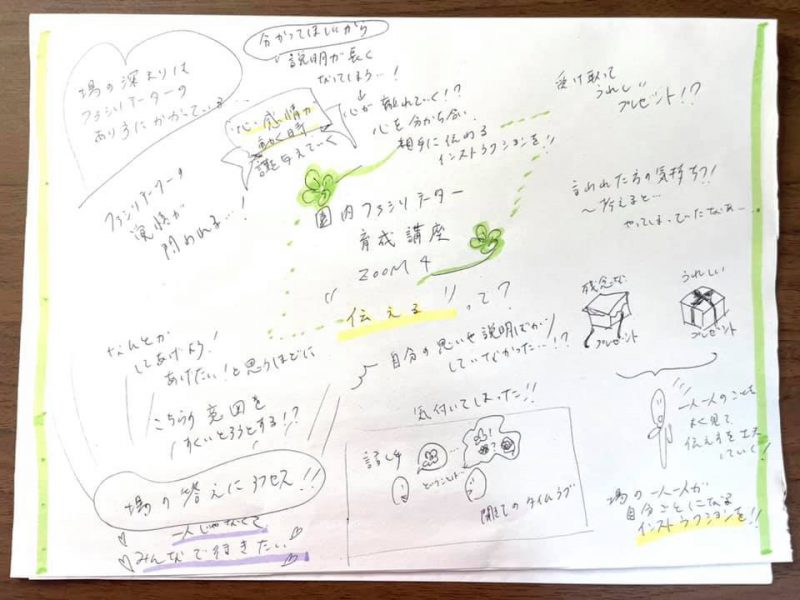 場の深まりは
ファシリテーターの
あり方にかかっている…
分かってほしいから
説明が長く
なってしまう…!
↓
心が離れていく!?
心・感情が
動く時
課題与えていく
心を分かち合い
相手に伝わる
インストラクションを!!
受け取って
うれしい
プレゼント!?
ファシリテーターの
覚悟が
問われる…!
園内ファシリテーター
育成講座
ZOOM4
"伝える"って?
言われた方の気持ち?!
〜考えると…
やってしまっていたなあ〜
残念な
プレゼント
うれしい
プレゼント
なんとか
してあげよう!
あげたい!と思うほどに
こちらの意図を
すくいとろうとする!?
自分の思いや説明ばかり
していなかった…!?
気付いてしまった!!
話し手
…
?
ということは…
聞き手のタイムラグ
一人一人のことを
よく見て
伝え方を工夫
していく!
場の一人一人が
自分ごとになる
インストラクションを!!
場の答えにアクセス!!
一人じゃなくて
みんなで行きたい